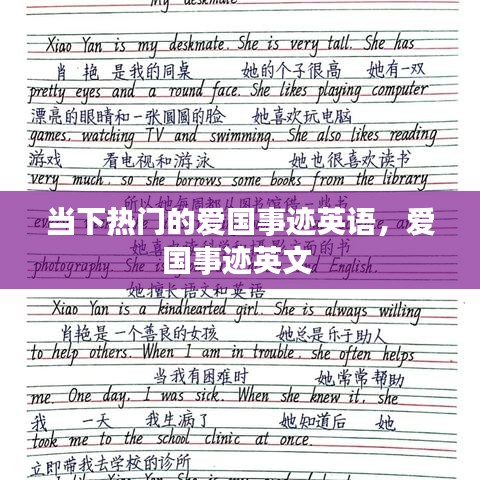 My deskmate
Xiao Yan is my deskmate. She is very tall. She has
肖艳是我的同桌 她的个子很高 她有一双
pretty eyes and a round face. She likes playing computer
漂亮的眼睛和一张圆圆的脸 她喜欢玩电脑
games, watching TV and swimming. She also likes reading
游戏 看电视和游泳 她也很喜欢读书
very much, so she borrows some books from the library
当下热门的爱国事迹英语，爱
国事迹英文
photography.
English.
她擅长语文和英语
Xiao Yan is a kindhearted girl. She is always willing
肖艳是一个善良的女孩 她总是乐于助人
to help others. When I am in trouble, she often helps
当我有困难时 她常常帮助
me. One day, I was sick. When she knew it, she
我 一天 我生病了 她知道后 她
took me to the school clinic at once.
立即带我去学校的诊所